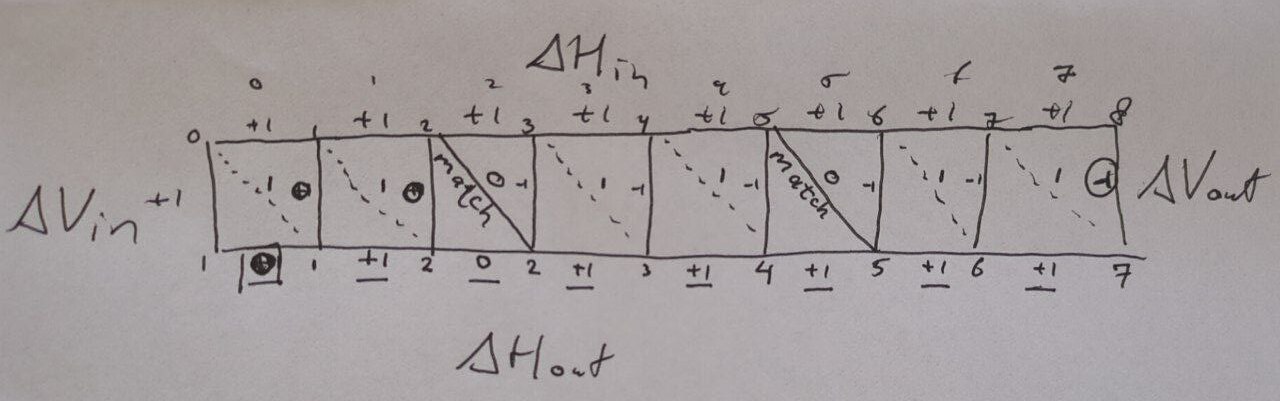 ΔHin
0 1 2 3 4 5 6 7
+1 +1 +1 +1 +1 +1 +1 +1
0 1 2 3 4 5 6 7 8
ΔVin +1 1 1 match 0 -1 1 -1 1 -1 match 0 -1 1 -1 1 -1 ΔVout
1 1 +1 2 0 2 +1 3 +1 4 +1 5 +1 6 +1 7
ΔHout